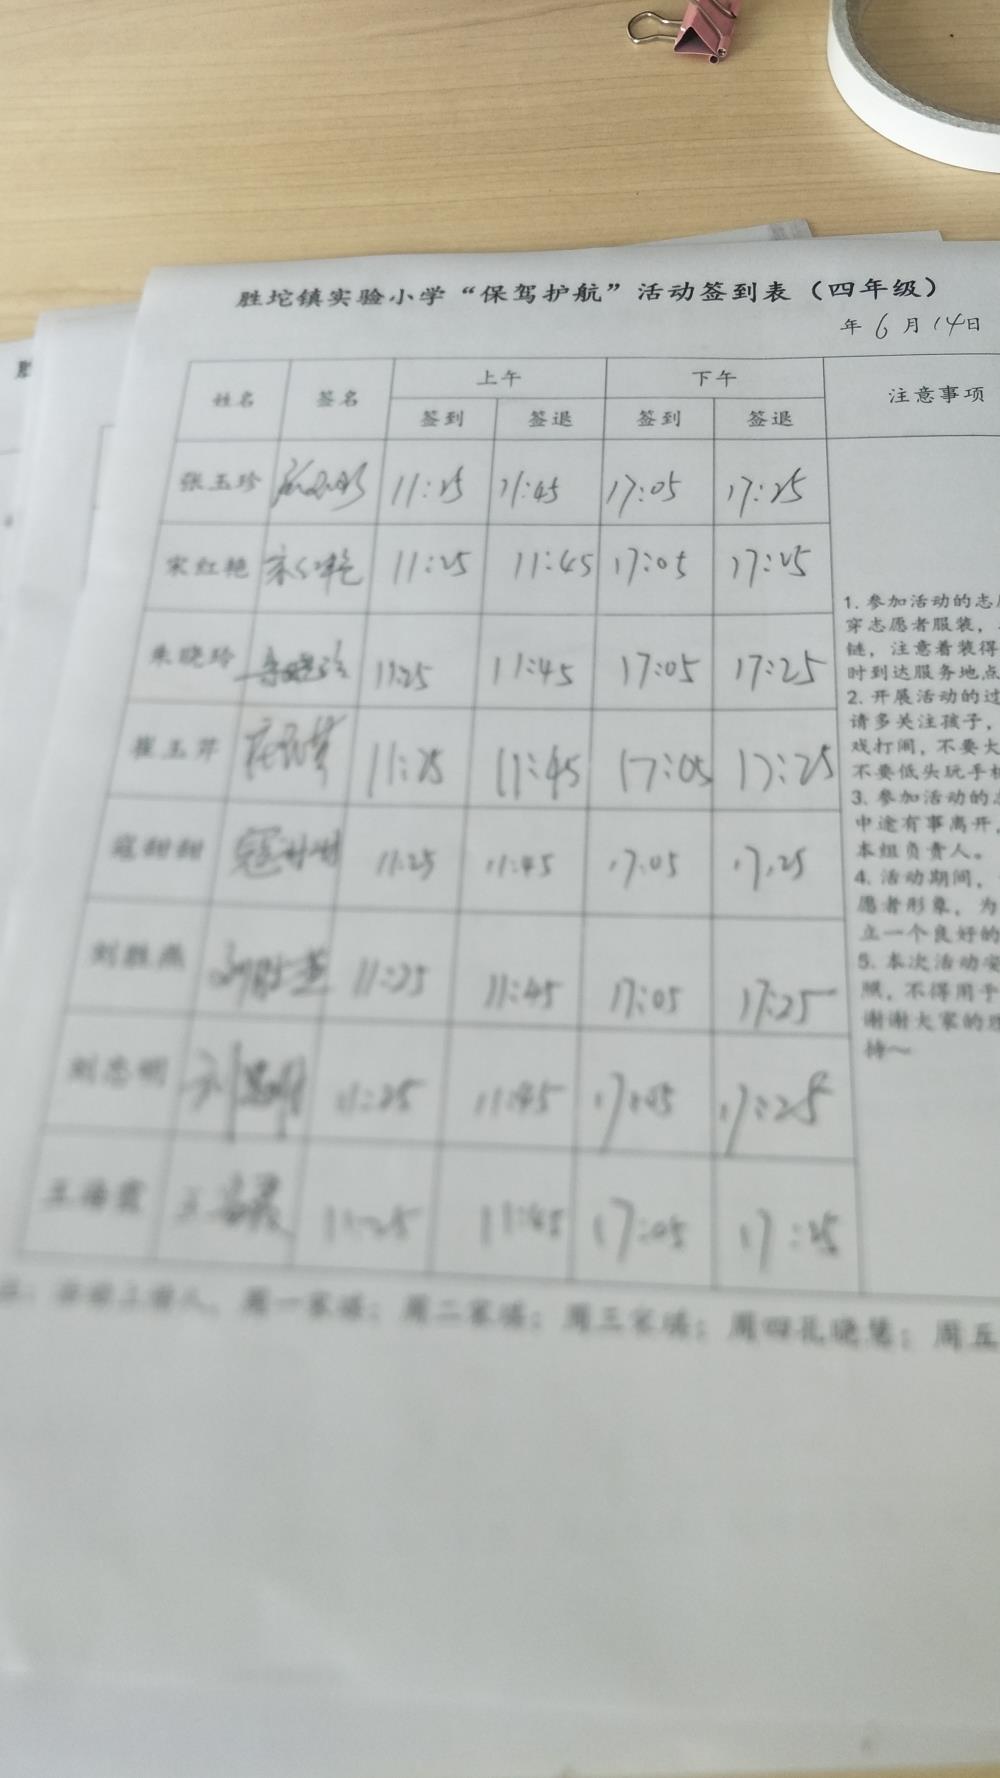 胜坨镇实验小学“保驾护航”活动签到表（四年级）
年 6 月 14日
姓名 签名 上午 下午 注意事项
签到 签退 签到 签退
张玉珍 11:25 11:45 17:05 17:25
宋红艳 宋红艳 11:25 11:45 17:05 17:25
朱晓玲 朱晓玲 11:25 11:45 17:05 17:25
崔玉芹 11:25 11:45 17:05 17:25
寇甜甜 寇甜甜 11:25 11:45 17:05 17:25
刘胜燕 刘胜燕 11:25 11:45 17:05 17:25
刘忠明 刘忠明 11:25 11:45 17:05 17:25
王海霞 王海霞 11:25 11:45 17:05 17:25
1. 参加活动的志
穿志愿者服装，
链，注意着装得
时到达服务地点
2. 开展活动的过
请多关注孩子，
戏打闹，不要大
不要低头玩手
3. 参加活动的
中途有事离开，
本组负责人。
4. 活动期间，
愿者形象，为
立一个良好的
5. 本次活动
照，不得用于
谢谢大家的
持～
周一 周二 周三 周四孔晓慧；周五